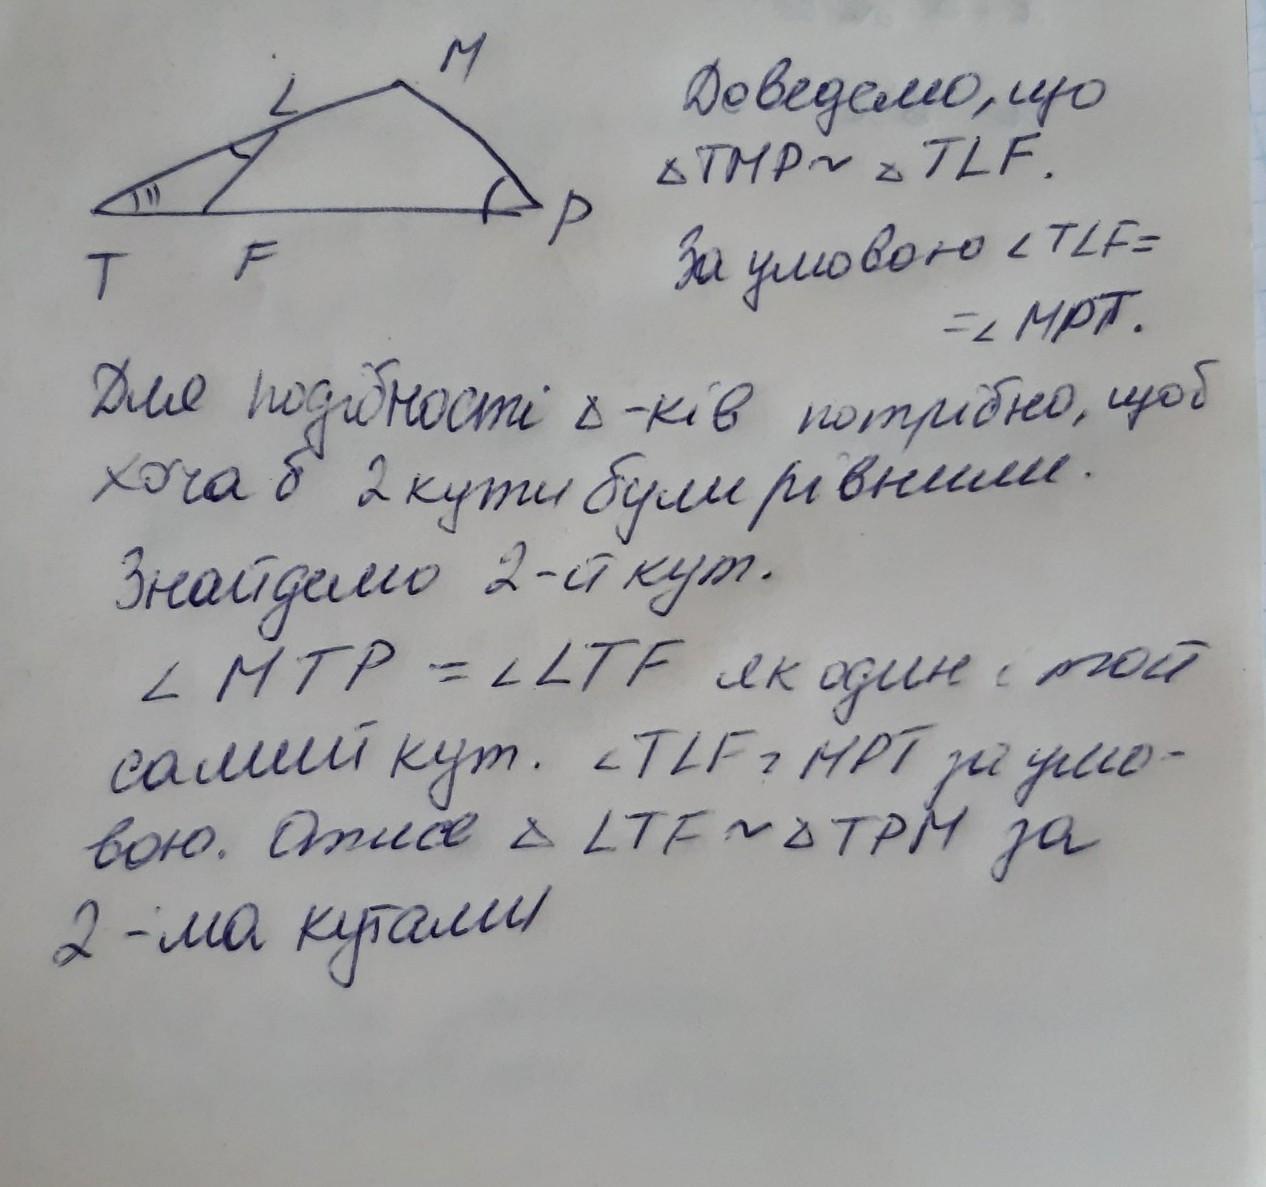 M
L
T F P
Доведемо, що
△TMP ~ △TLF.
За умовою ∠TLF=
=∠MPT.
Для подібності △-ків потрібно, щоб
хоча б 2 кути були рівними.
Знайдемо 2-й кут.
∠MTP = ∠LTF як один і той
самий кут. ∠TLF = MPT за умо-
вою. Отже △ LTF ~ △TPM за
2-ма кутами